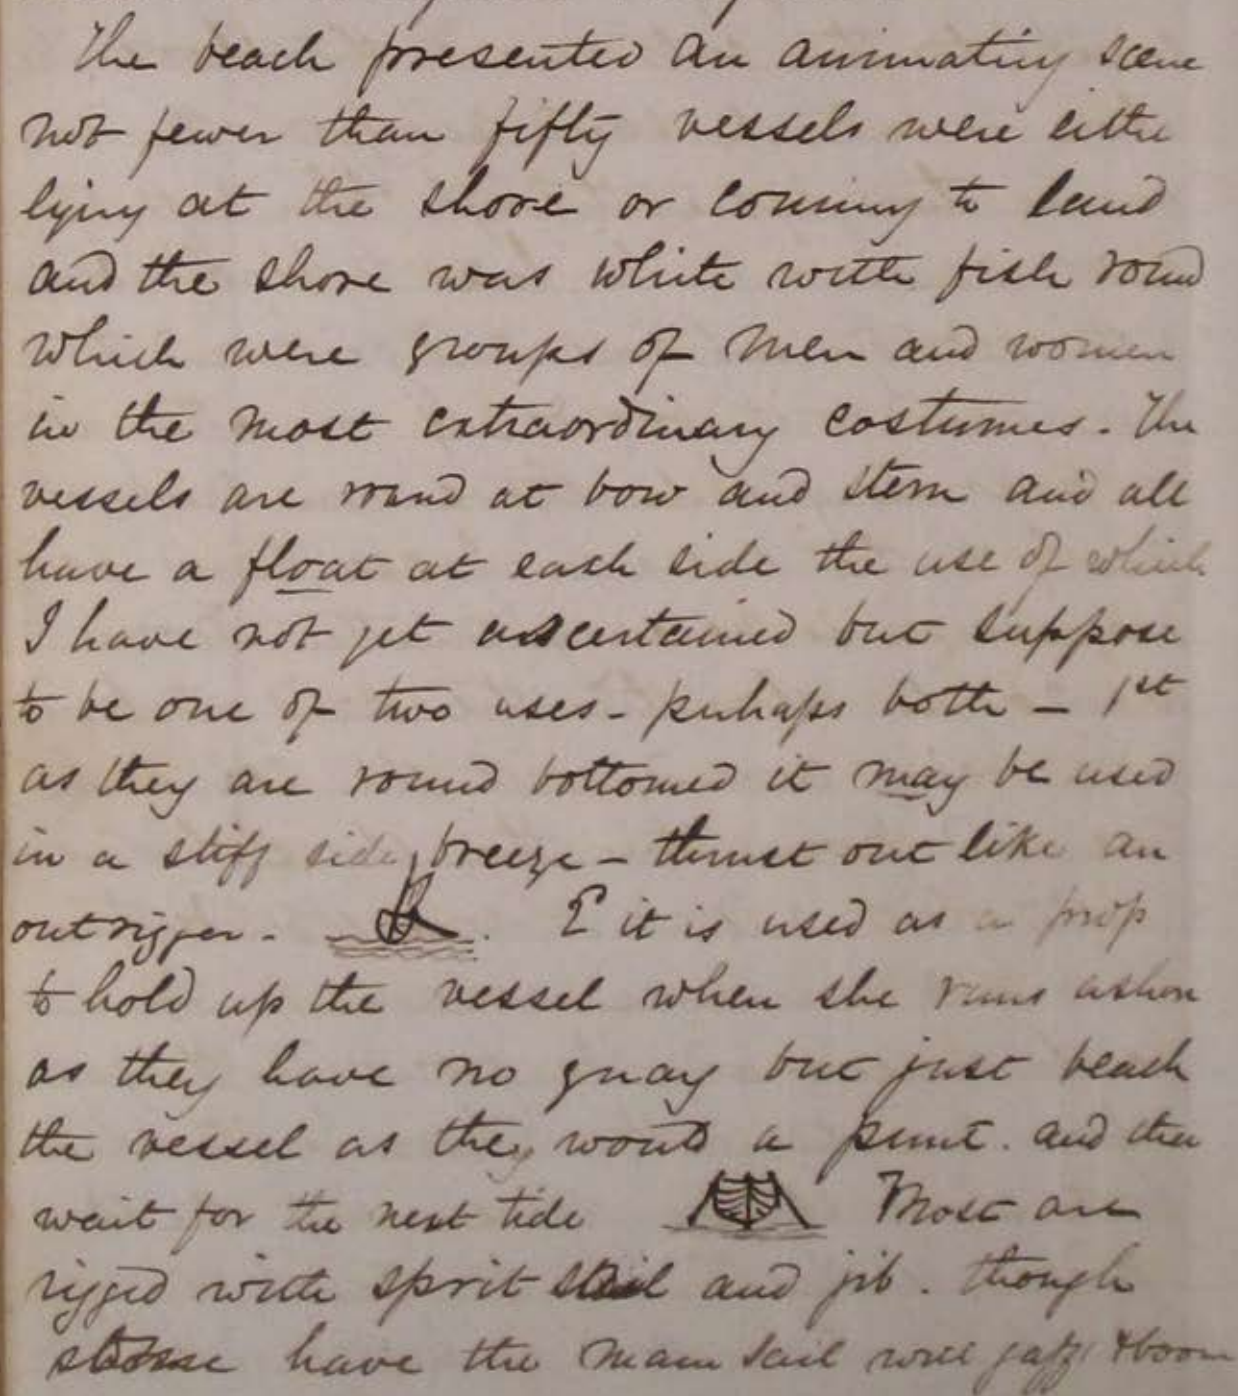 The beach presented an animating scene
not fewer than fifty vessels were either
lying at the shore or coming to land
and the shore was white with fish round
which were groups of men and women
in the most extraordinary costumes. The
vessels are round at bow and stern and all
have a float at each side the use of which
I have not yet ascertained but suppose
to be one of two uses - perhaps both - 1st
as they are round bottomed it may be used
in a stiff side breeze - thrust out like an
outrigger - . it is used as a prop
to hold up the vessel when she runs ashore
as they have no quay but just beach
the vessel as they would a punt. and then
wait for the next tide Most are
rigged with sprit sail and jib. though
some have the main sail with gaff & boom